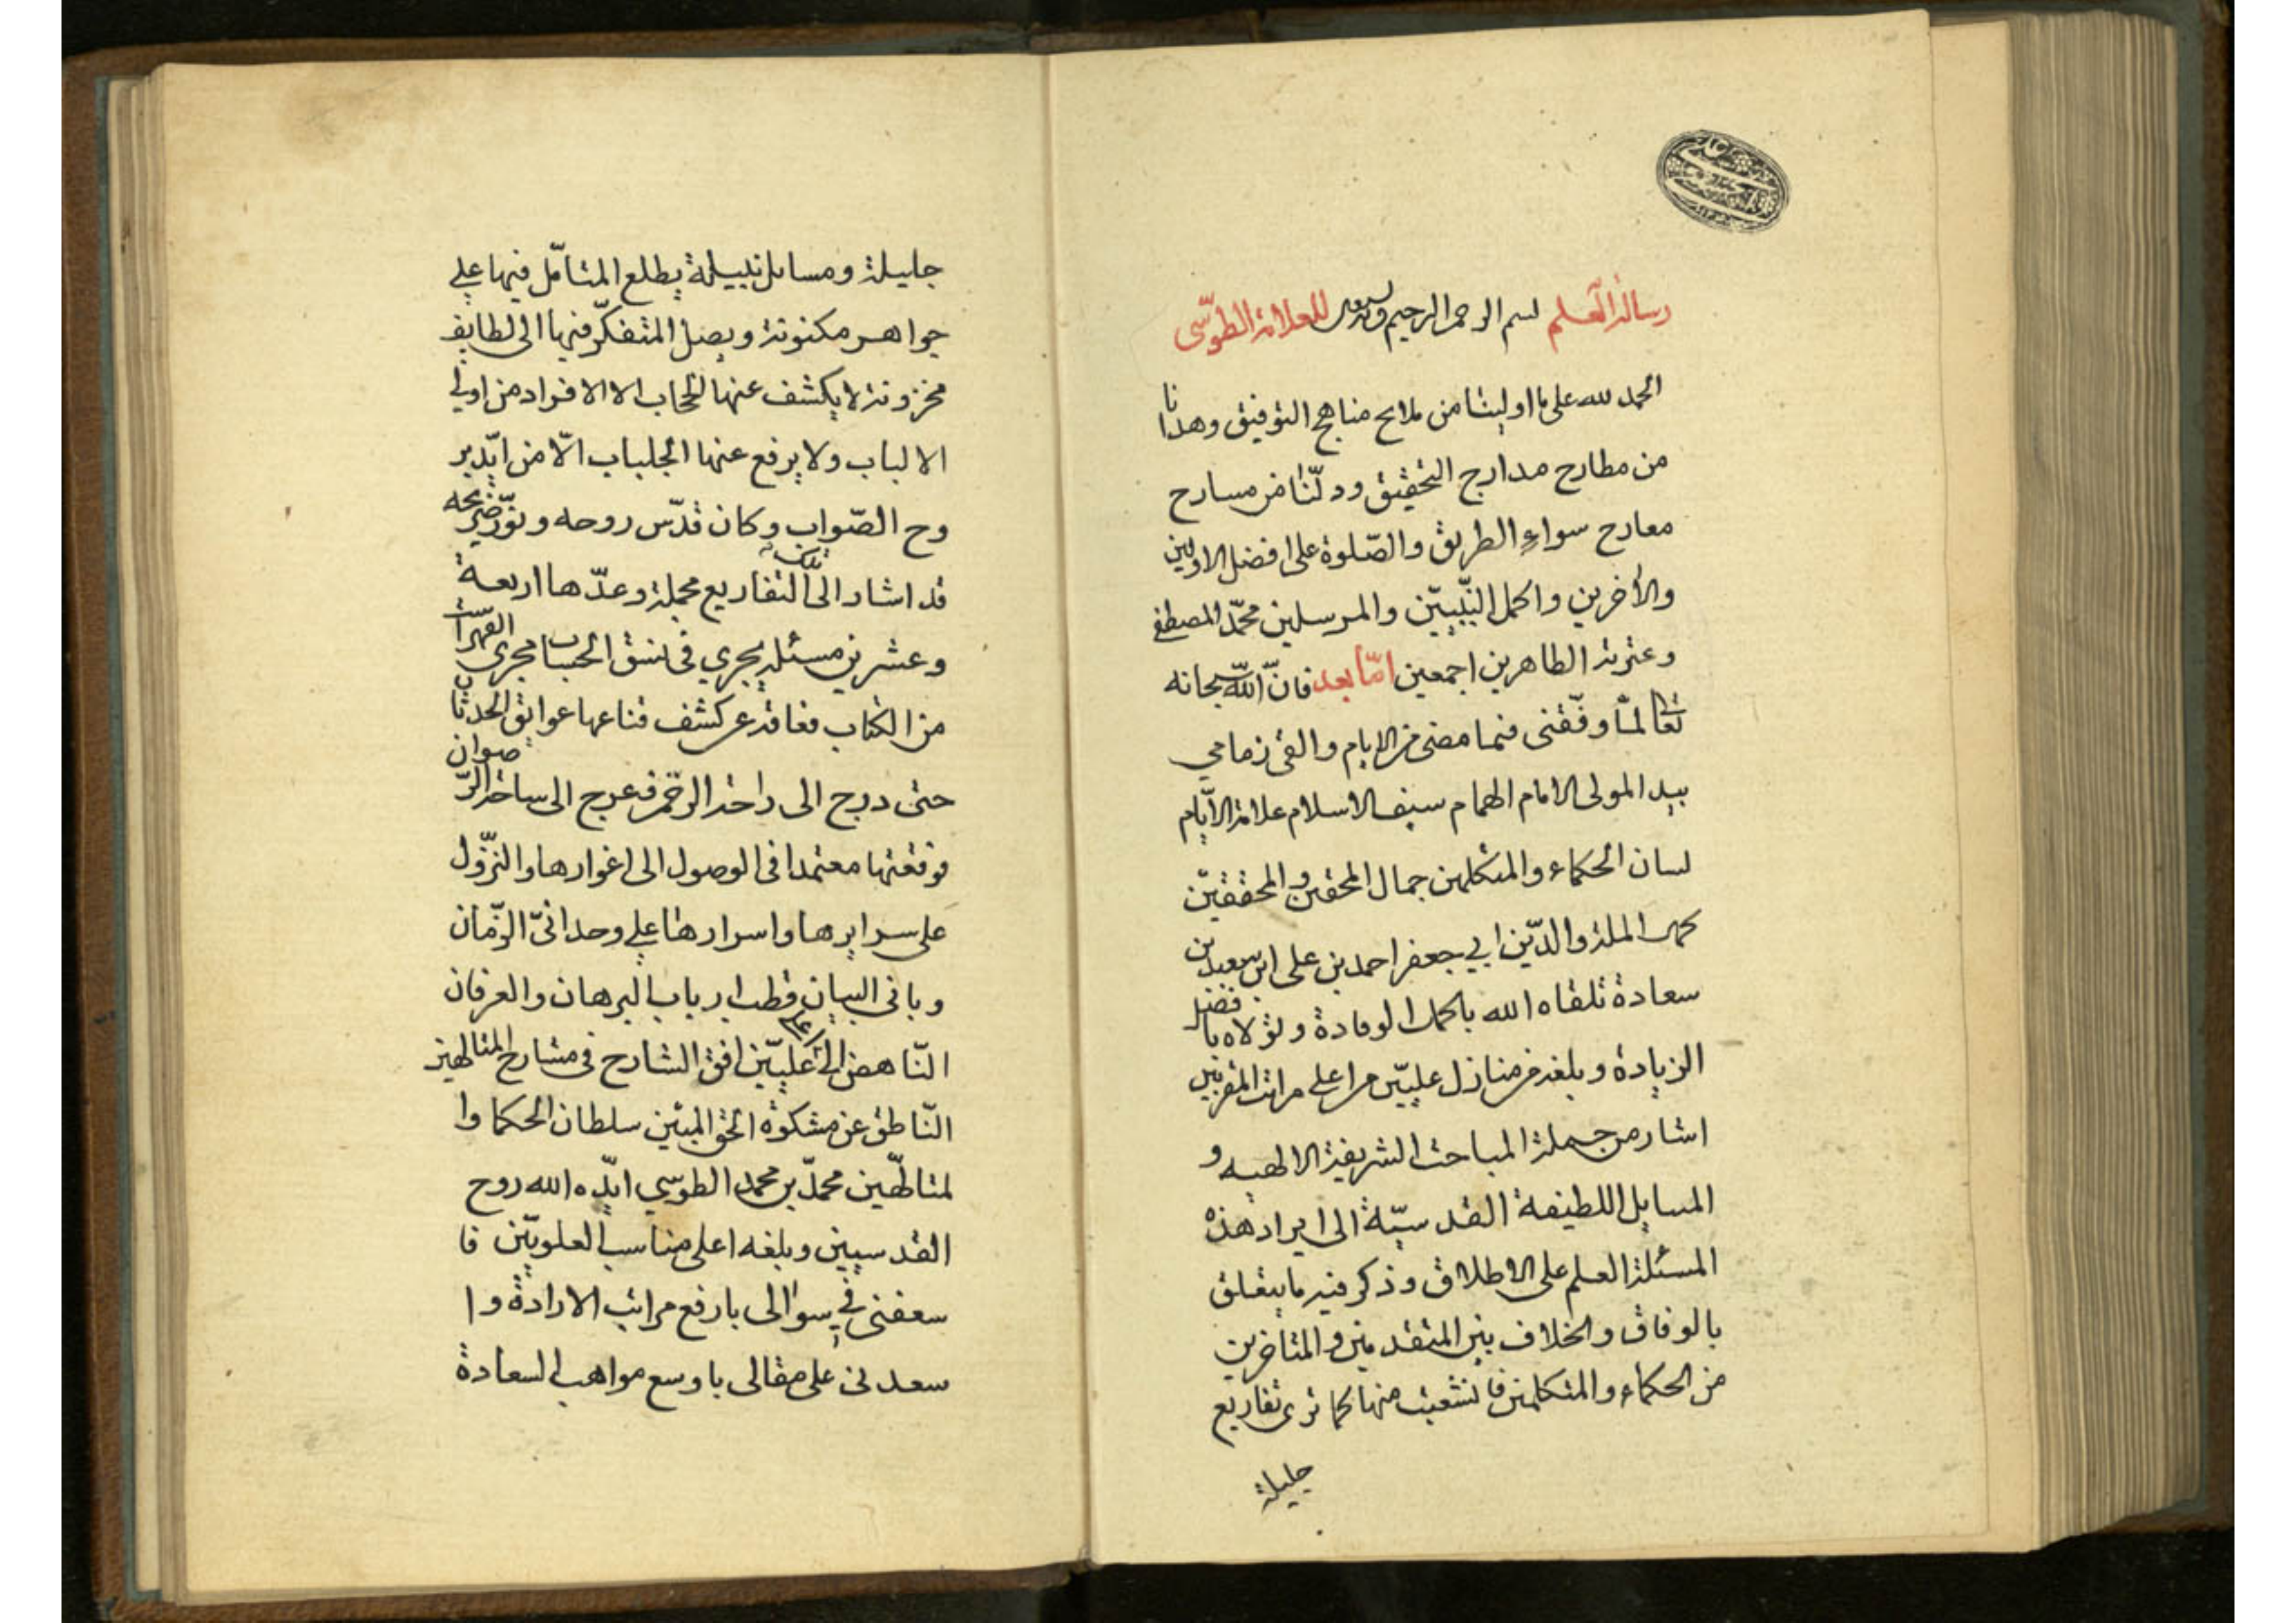 رسالة العلم بسم الله الرحمن الرحيم للعلامة الطوسّى
الحمد لله على ما اولينا من ملامح مناهج التوفيق وهدانا
من مطارح مدارج التحقيق ودلّنا من مسارح
معارج سواء الطريق والصّلوة على افضل الاولين
والأخرين واكمل النّبييّن والمرسلين محمّد المصطفى
وعترته الطاهرين اجمعين امّا بعد فانّ اللّه سبحانه
تعالى لمّا وفّقنى فيما مضى من الايام والقى زمامي
بيد المولى الامام الهمام سيف الاسلام علامة الايّام
لسان الحكماء والمتكلمين جمال المحقين والمحققيّن
كمال الملة والدّين ابي جعفر احمد بن على ابن سعيد بن
سعادة تلقاه الله باكمل الوفادة وتولاه بافضل
الزيادة وبلغه من منازل علييّن اعلى مراتب المقربين
اشار من جملة المباحث الشريفة الالهيه و
المسايل اللطيفة القدسيّة الى ايراد هذه
المسئلة العلم على الاطلاق وذكر فيه ما يتعلق
بالوفاق والخلاف بين المتقدمين والمتاخرين
من الحكماء والمتكلمين فانشعبت منها كما ترى تفاريع
جليلة
جليلة ومسايل نبيلة يطلع المتامّل فيها على
جواهر مكنونة ويصل المتفكّر فيها الى لطايف
مخزونة لا يكشف عنها الحجاب الا الافراد من اولي
الالباب ولا يرفع عنها الجلباب الّا من ايّد بر
وح الصّواب وكان قدّس روحه ونوّر ضريحه
قد اشار الى تلك التفاريع مجملة وعدّها اربعة
وعشرين مسئلة يجري فى نسق الحساب مجرى الفهرست
من الكتاب فعاقه عن كشف قناعها عوايق الحدثان
حتى درج الى راحة الرحمة فعرج الى ساحة الرّضوان
فوقعتها معتمدا فى الوصول الى اغوارها والنزّول
على سرايرها واسرارها على وحدانىّ الزمّان
وبانى البيان قطب ارباب البرهان والعرفان
النّاهض الى اعلى علييّن افق الشارح فى مشارح المتالهين
النّاطق عن مشكوة الحق المبين سلطان الحكما وا
لمتالّهين محمّد بن محمد الطوسي ايّده الله بروح
القدسيين وبلغه اعلى مناسب العلوييّن فا
سعفنى في سوالى بارفع مراتب الارادة وا
سعدنى على مقالى باوسع مواهب السعادة